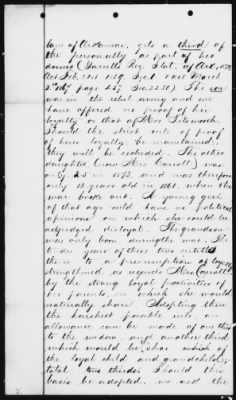 law of Arkansas, gets a third of
the personalty as part of her
dower (Garrett's Dig. Stat. of Ark,
Act Feb. 21st 1859. Sec. 2220) The son
was in the rebel army and we
have offered no proof of his
loyalty or that of Mrs Titsworth.
Should the strict rule of proof
of here loyalty be maintained
they will be excluded. The other
daughter (now Mrs Carroll) was
only 25 in 1873. and was therefore
only 13 years old in 1861. when the
war broke out. A young girl
of that age could have no political
opinions on which she could be
adjudged disloyal. The grandson
was only born during the war. The
tender years of these two entitle
them to a presumption of loyalty
strengthened, as regards Mrs Carroll
by the strong loyal proclivities of
her parents, which she would
naturally share. Adopting then
the harshest possible rule, an
allowance can be made of one third
to the widow, and another third
which would be the share of
the loyal child and grandchild in
total, two thirds. Should this
basis be adopted, we ask the